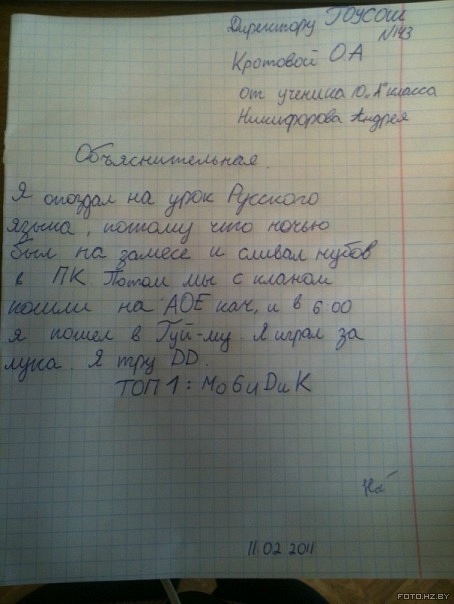 Директору ГОУСОШ
№143
Кротовой О А
от ученика 10 „А" класса
Никифорова Андрея
Объяснительная.
Я опоздал на урок Русского
языка, потому что ночью
был на замесе и сливал нубов
в ПК. Потом мы с кланом
пошли на АОЕ кач, и в 6:00
я пошел в Гуй-му. Я играл за
лука. Я тру DD.
ТОП 1: МоБиDиК
11.02.2011
FOTO.HZ.BY